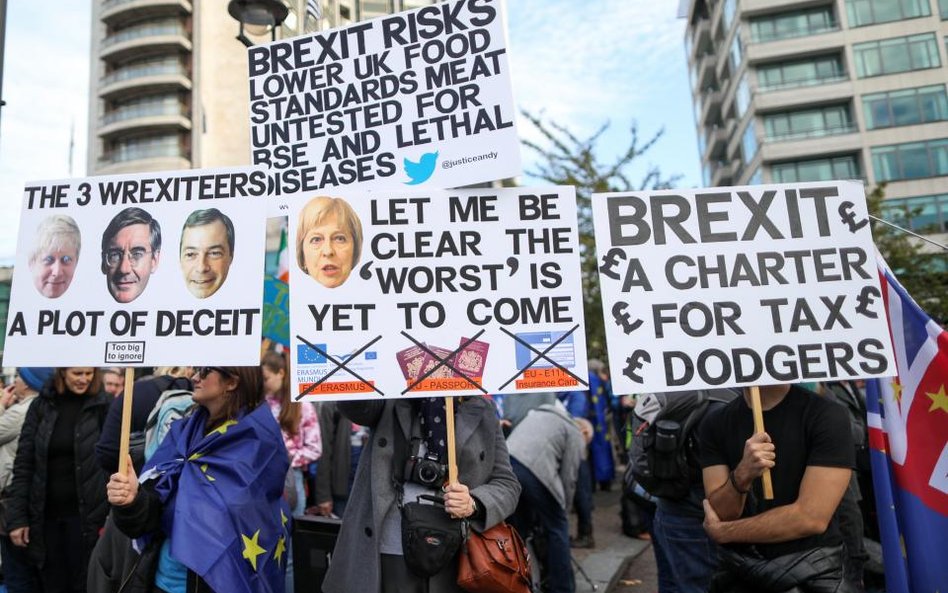 BREXIT RISKS
LOWER UK FOOD
STANDARDS MEAT
UNTESTED FOR
BSE AND LETHAL
DISEASES
@justiceandy
THE 3 WREXITEERS
A PLOT OF DECEIT
Too big
to ignore
LET ME BE
CLEAR THE
'WORST' IS
YET TO COME
EU - ERASMUS
EU - PASSPORT
EU - E111
Insurance Card
BREXIT £
£ A CHARTER
£ FOR TAX £
£ DODGERS